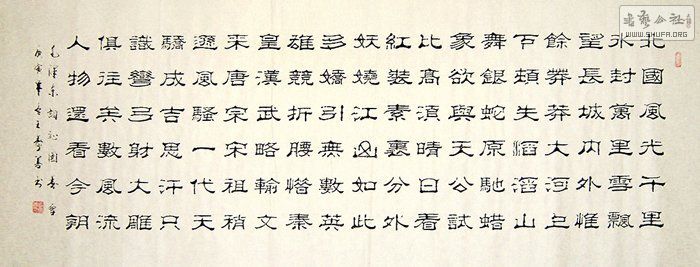 北國風光千里
冰封萬里雪飄
望長城內外惟
餘莽莽大河上
下頓失滔滔山
舞銀蛇原馳蠟
象欲與天公試
比高須晴日看
紅裝素裹分外
妖嬈江山如此
多嬌引無數英
雄競折腰惜秦
皇漢武略輸文
采唐宗宋祖稍
遜風騷一代天
驕成吉思汗只
識彎弓射大雕
俱往矣數風流
人物還看今朝
毛澤東詞沁園春雪
書藝公社
WWW.SHUFA.ORG